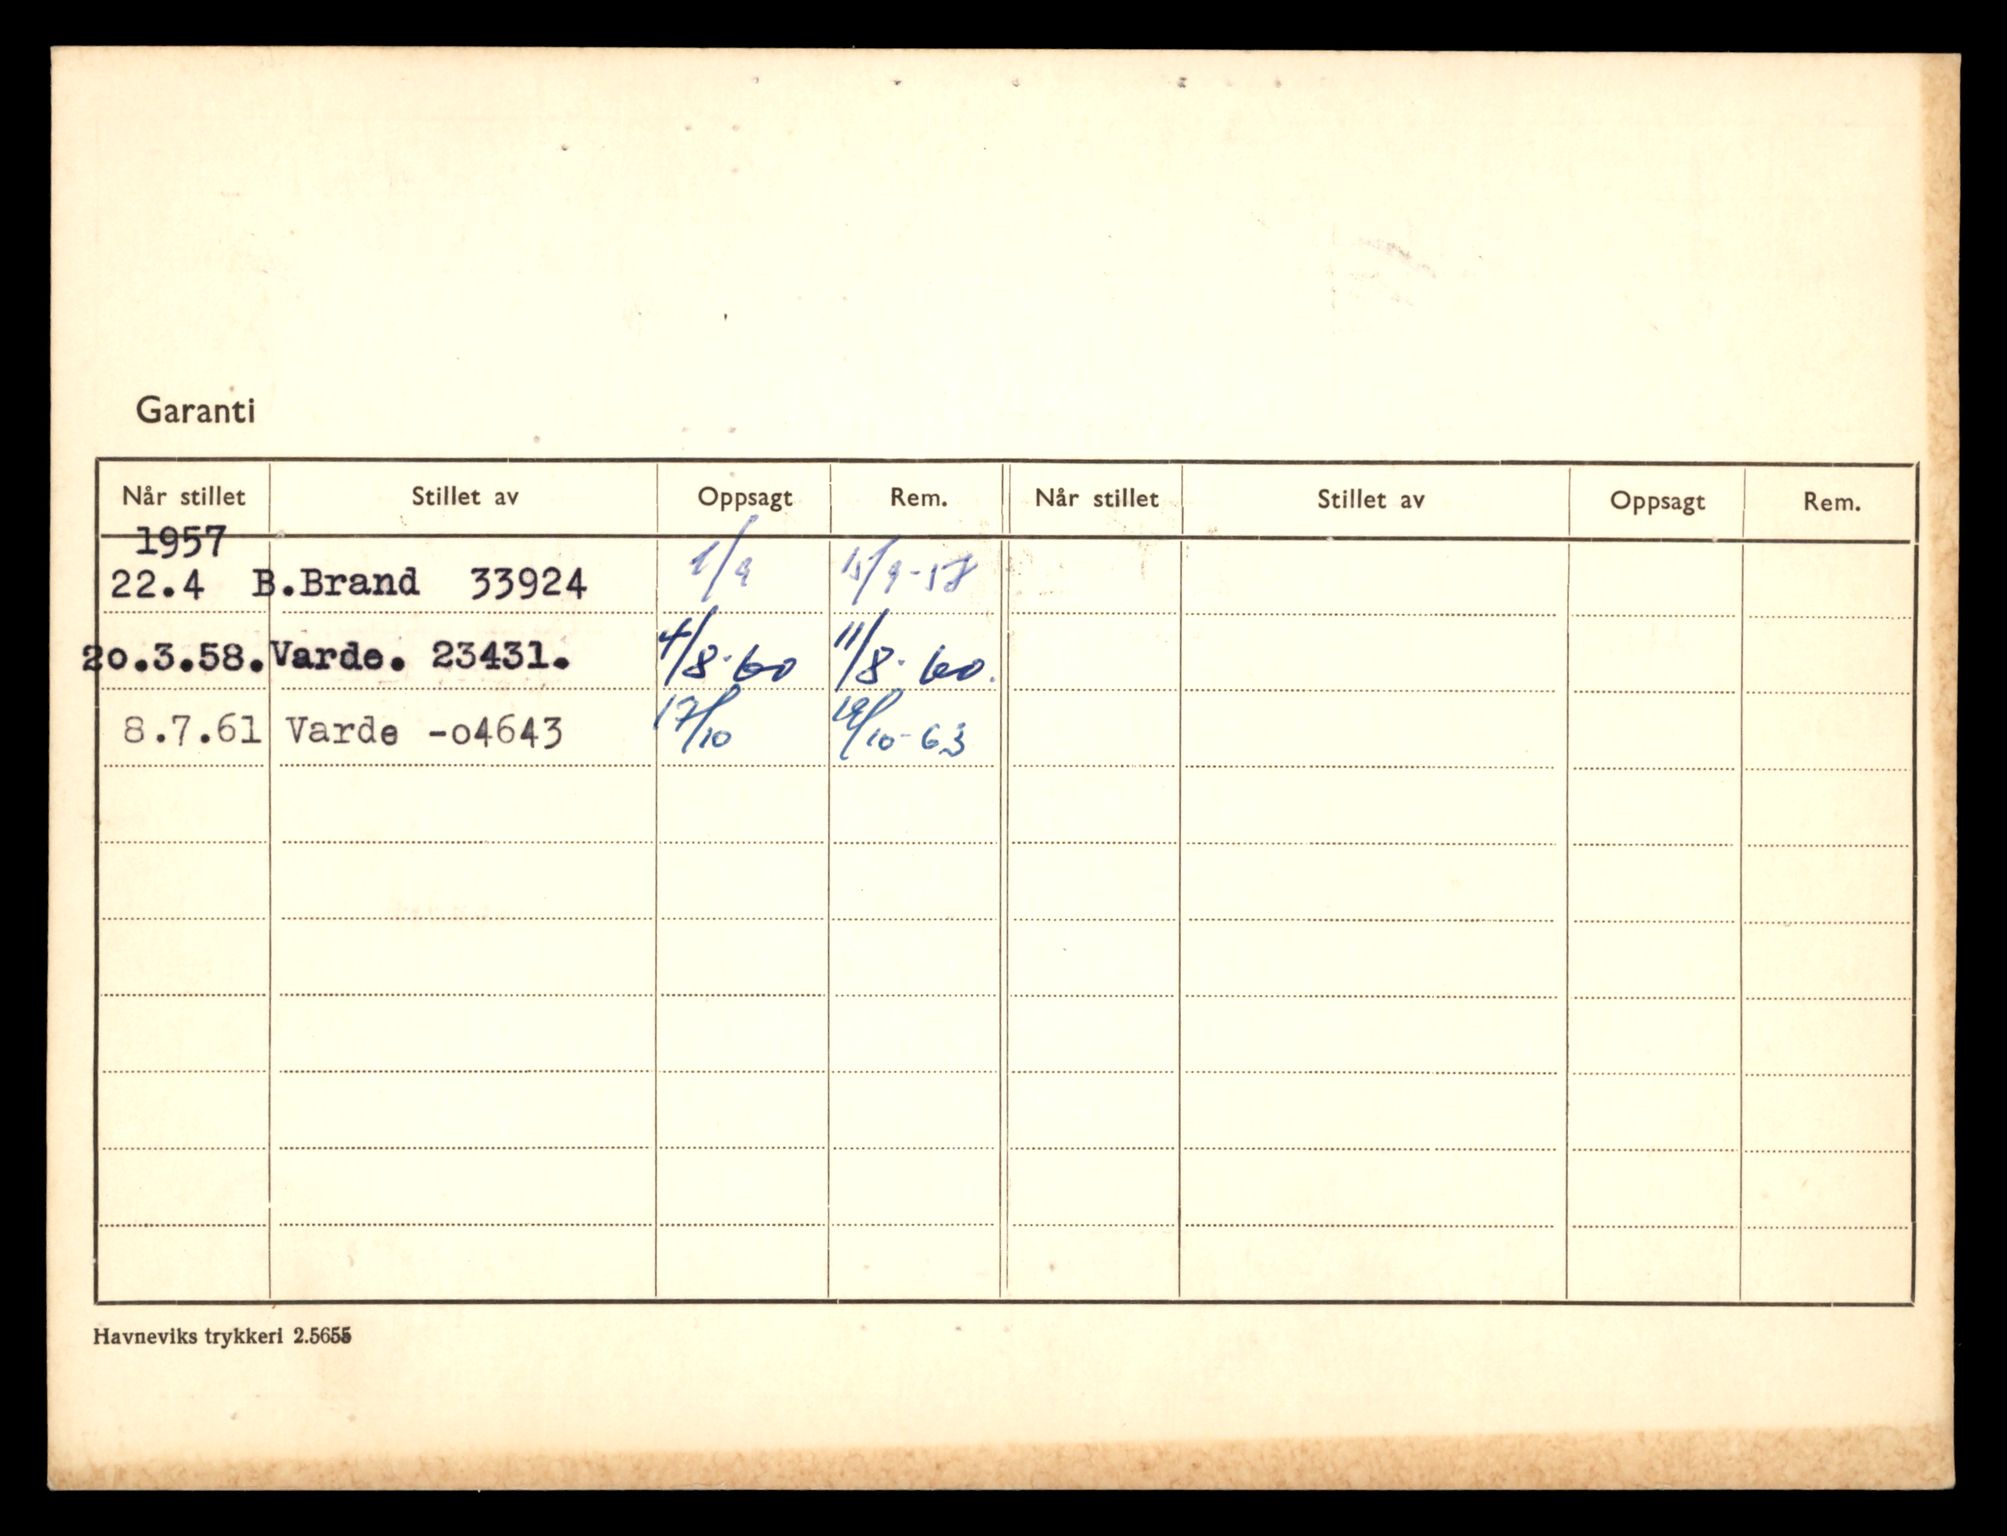 Garanti
Når stillet Stillet av Oppsagt Rem. Når stillet Stillet av Oppsagt Rem.
1957
22.4 B.Brand 33924 1/9 15/9-57
20.3.58. Varde. 23431. 4/8-60 11/8-60.
8.7.61 Varde -o4643 17/10 /10-63
Havneviks trykkeri 2.5655